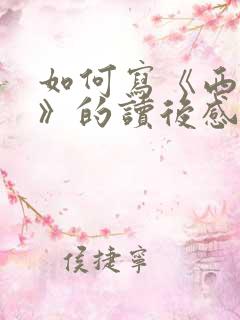 如何寫《西
》的讀後感
侯捷寧